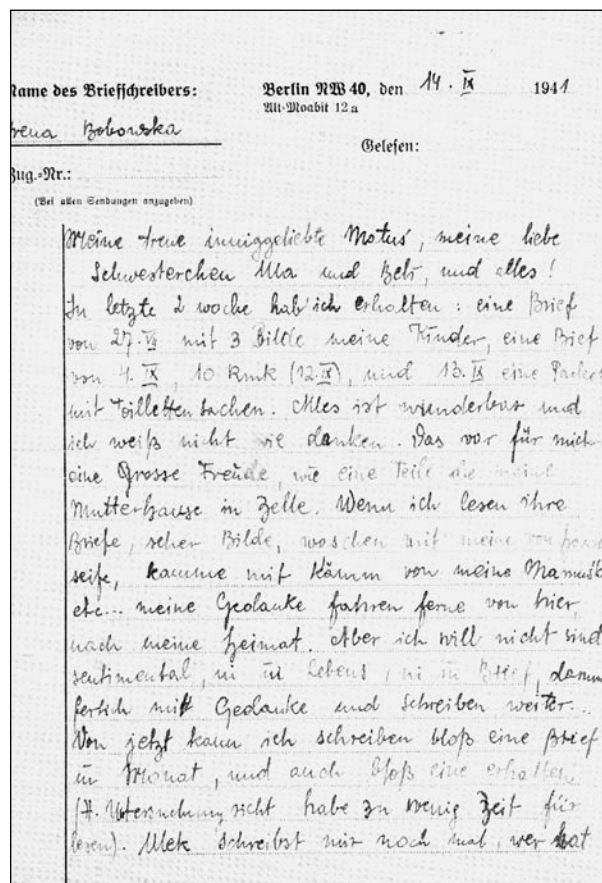 Name des Briefschreibers:
Berlin NW 40, den 14. IX 1941
Alt-Moabit 12a
Irena Bobowska
Gelesen:
Zug.-Nr.:
(Bei allen Sendungen anzugeben)
Meine treue inniggeliebte Motuś, meine liebe
Schwesterchen Ma und Beli, und alles!
In letzte 2 woche hab' ich erhalten: eine Brief
von 27. VIII mit 3 Bilde meine Kinder, eine Brief
von 4. IX, 10 Rmk (12. IX), und 13. IX eine Packet
mit Toiletten sachen. Alles ist wunderbar und
ich weiß nicht wie danken. Das var für mich
eine Grosse Freude, wie eine Teile meine
Mutterhause in Zelle. Wenn ich lesen ihre
Briefe, seher Bilde, waschen mit meine von
seife, kamme mit Kämm von meine Mamuśk
etc... meine Gedanke fahren ferne von hier,
nach meine Heimat. Aber ich will nicht sind
sentimental, ni in Lebens, ni in Brief, darum
fertich mit Gedanke und Schreiben weiter..
Von jetzt kann ich schreiben bloß eine Brief
in Monat, und auch bloß eine erhalten
(H. Untersuchung richt habe zu wenig Zeit für
lesen). Mek schreibst mir noch mal, wer hat